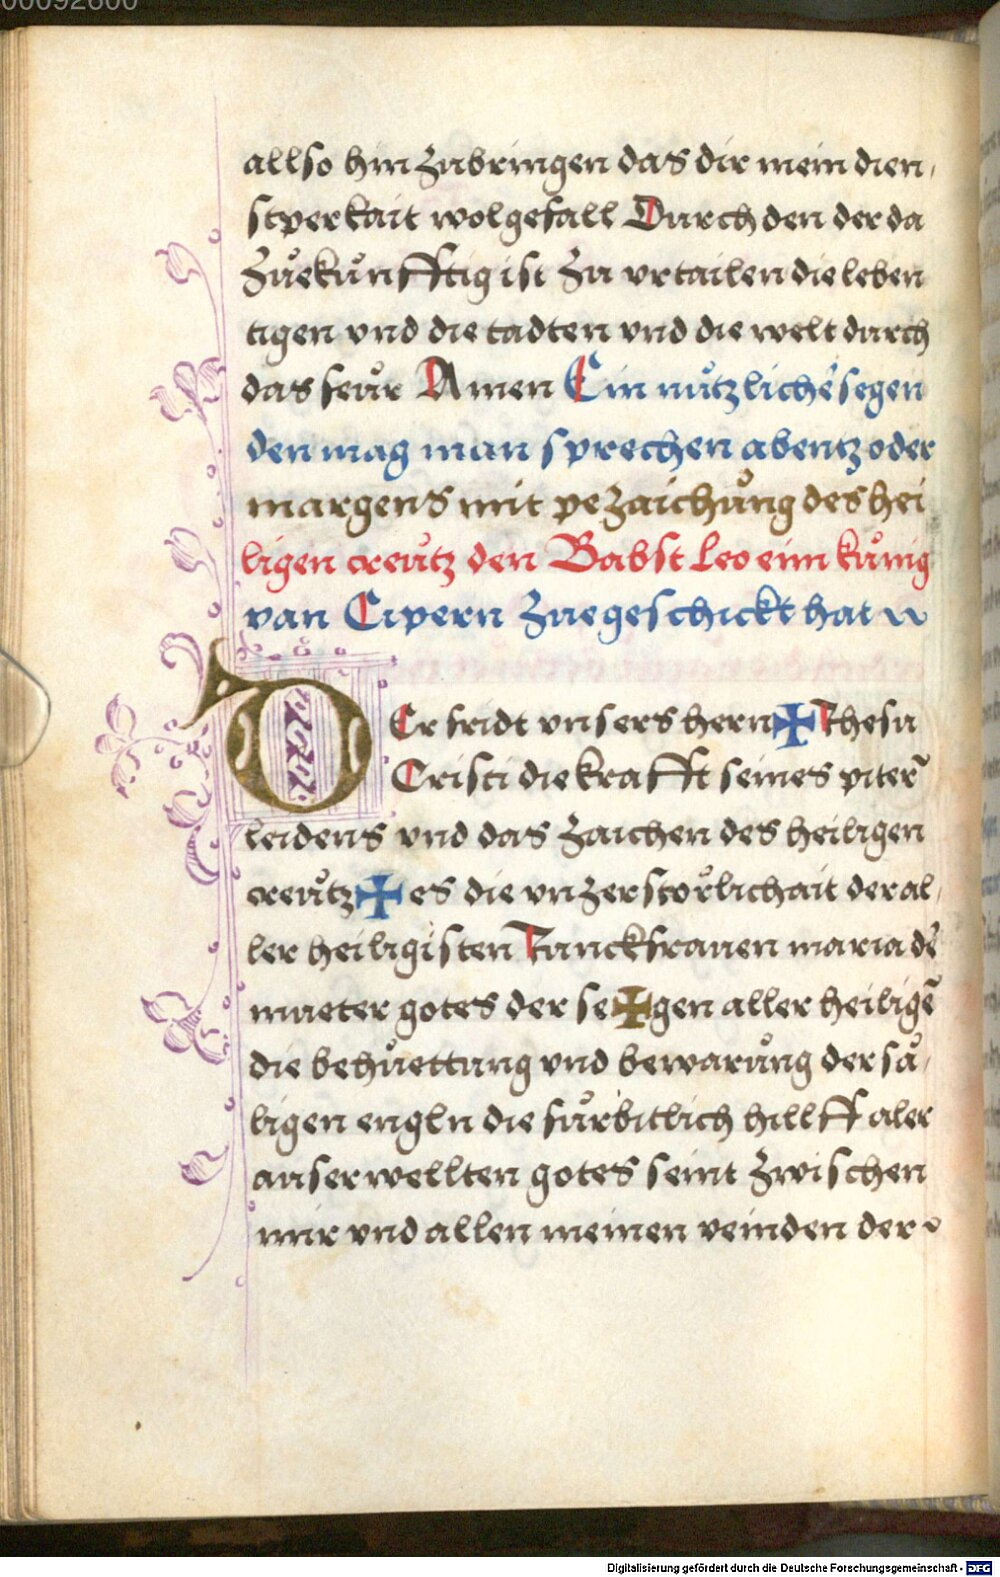 00092600
allso hin zubringen das dir mein dien,
stperkait wolgefall Durch den der da
Zůekůnfftig ist Zu vrtailen die leben
tigen vnd die tadten vnd die welt durch
das feůr Amen Ein nůtzlichẽ segen
den mag man sprechen abentz oder
margens mit peZaichůng des hei
ligen creůtz den Babst Leo eim kůnig
van Cipern Zuegeschickt hat
DEr fridt vnsers hern ✠ Jhesu
Cristi die krafft seines piter̃
leidens vnd das Zaichen des heiligen
creůtz ✠ es die vnzerstörlichait der al,
ler heiligisten Junckfrauen maria dẽ
mueter gotes der se ✠ gen aller heiligẽ
die behůettung vnd bewarůng der så,
ligen engln die fůrbitlich hillff aler
auserwellten gotes seint Zwischen
mir vnd allen meinen veinden der
Digitalisierung gefördert durch die Deutsche Forschungsgemeinschaft - DFG